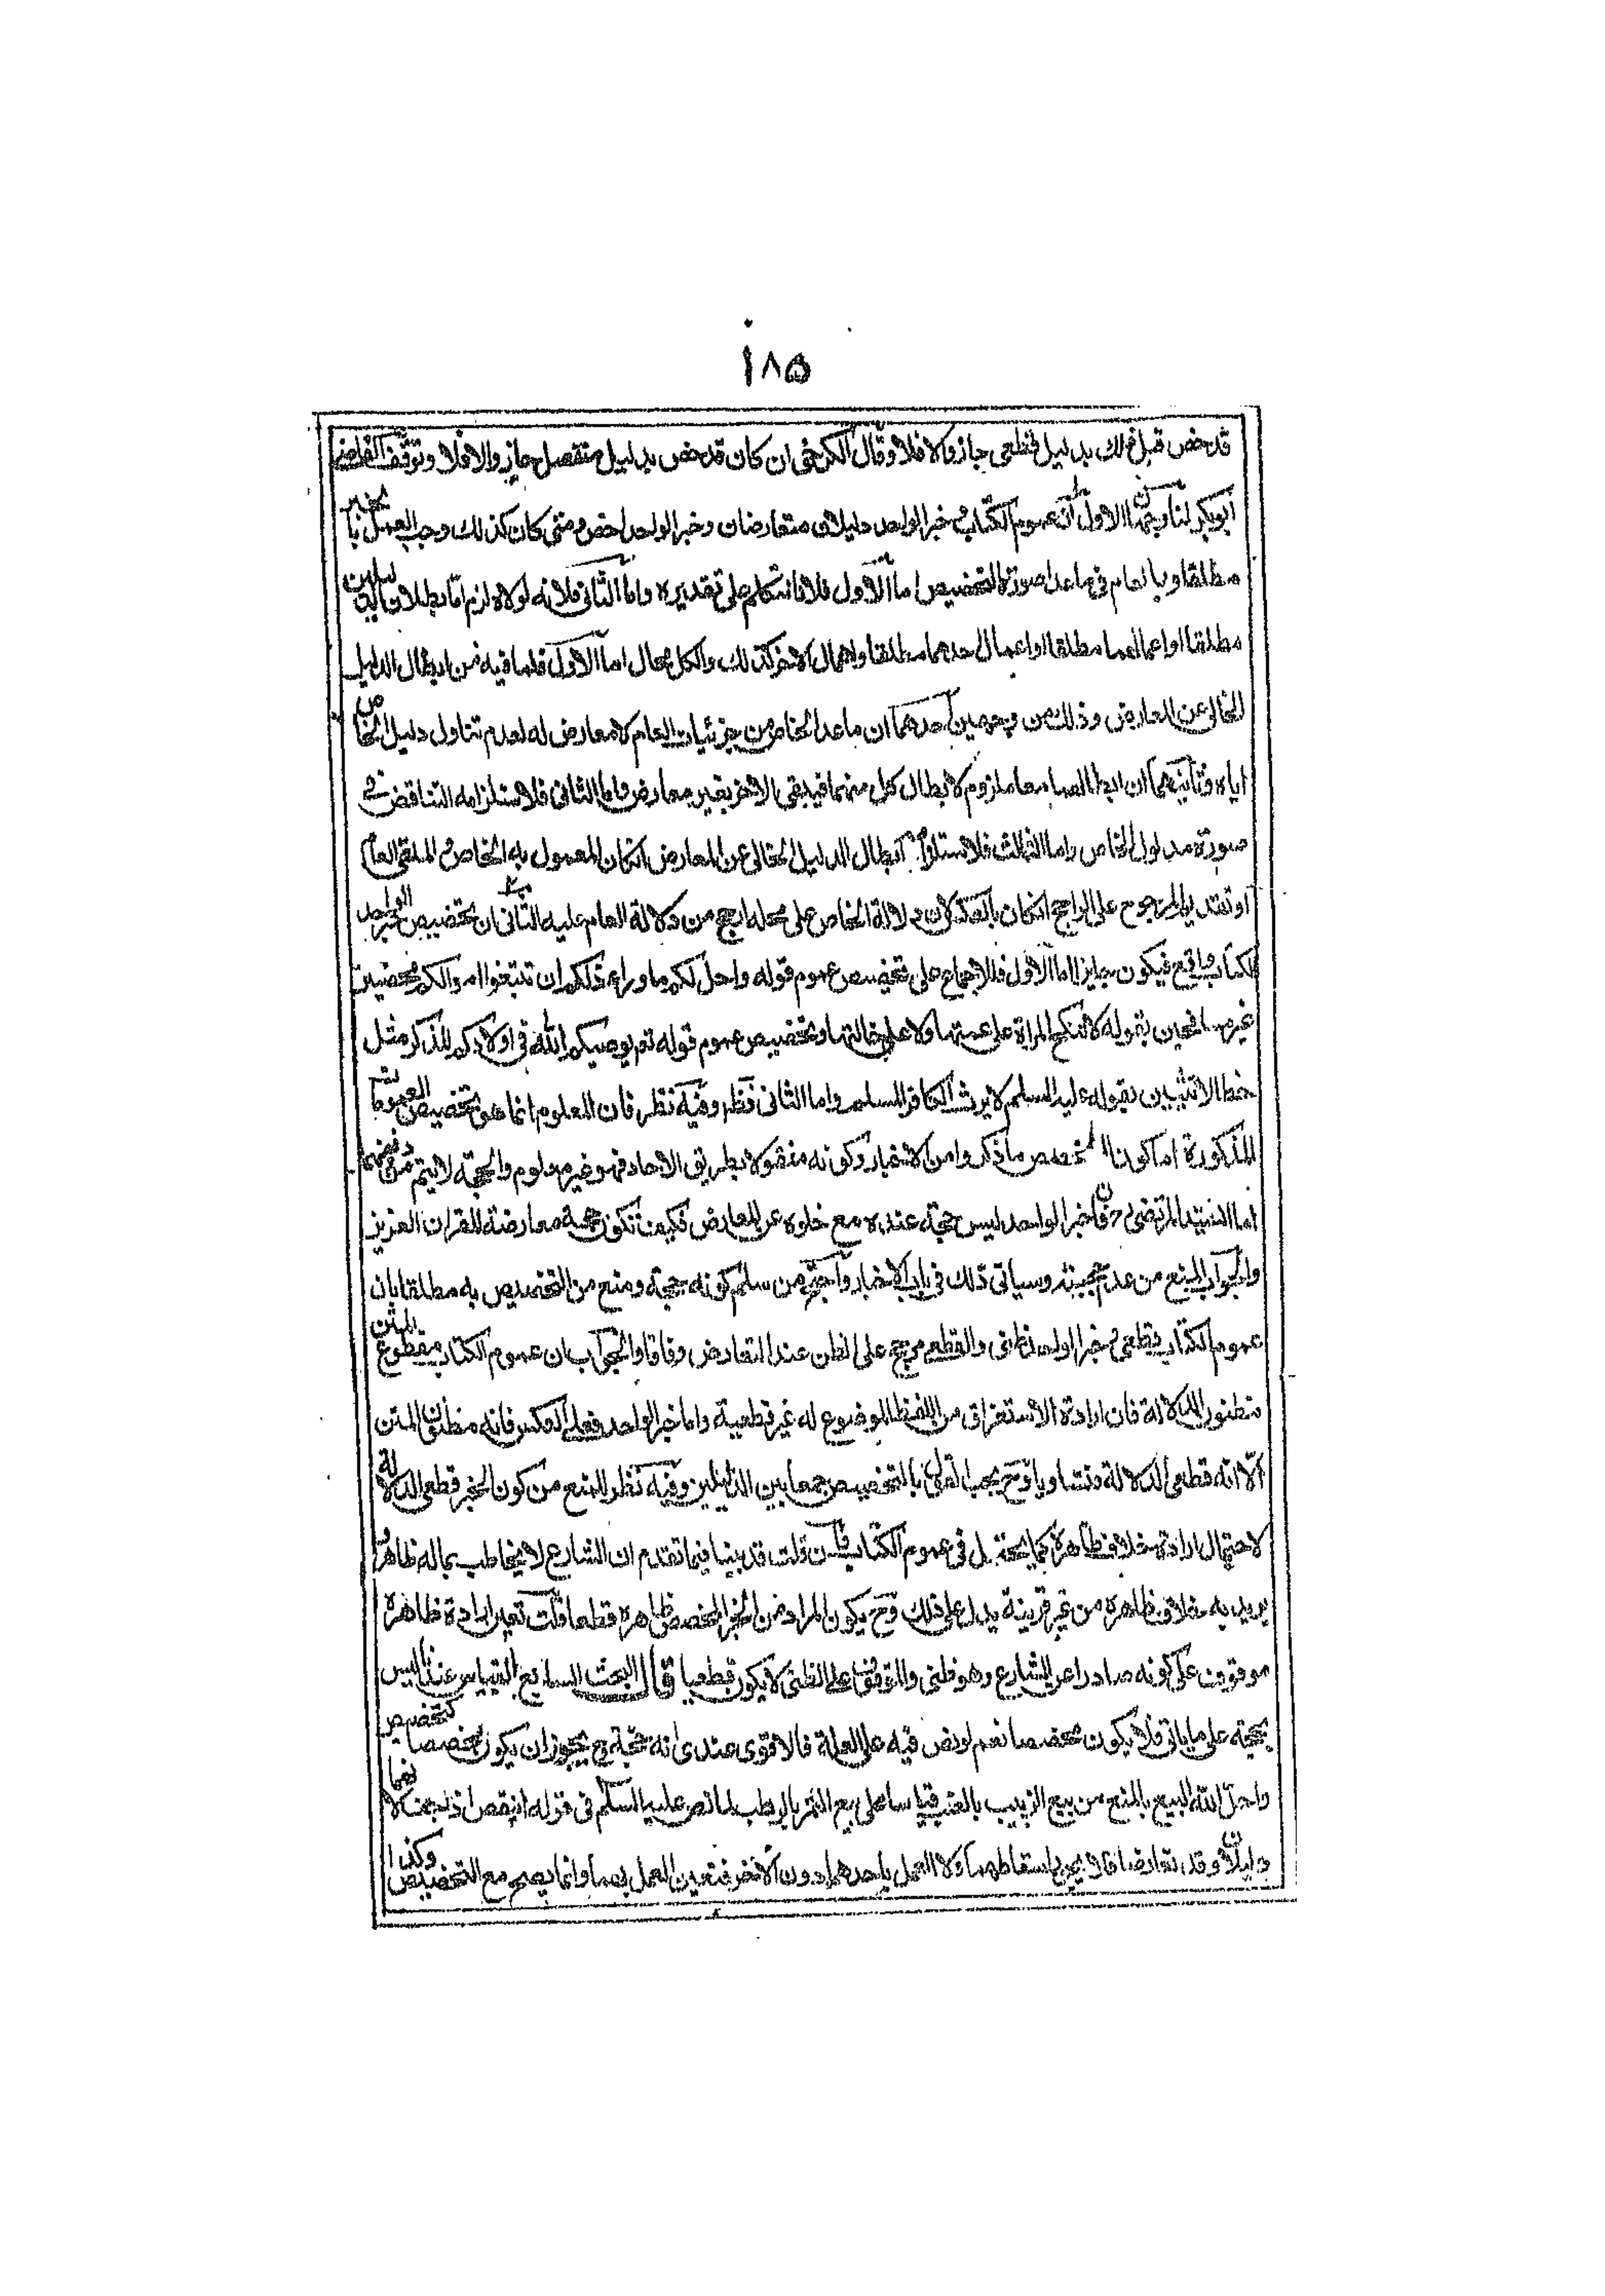 ١٨٥
قد خص قبل ذلك بدليل قطعي جاز والا فلا وقال الكرخي ان كان قد خص بدليل منفصل جاز والا فلا وتوقف القاضي
ابو بكر لنا وجهان الاول ان عموم الكتاب وخبر الواحد دليلان متعارضان وخبر الواحد اخص ومتى كان كذلك وجب العمل بالخبر
مطلقا وبالعام في ما عدا صورة التخصيص اما الاول فلانا نتكلم على تقديره واما الثاني فلانه لولاه لزم اما بطلان الدليلين
مطلقا او اعمالهما مطلقا او اعمال احدهما مطلقا واهمال الاخر كذلك والكل محال اما الاول فلما فيه من ابطال الدليل
الخالي عن المعارض وذلك من وجهين احدهما ان ما عدا الخاص من جزئيات العام لا معارض له لعدم تناول دليل الخاص
اياه وثانيهما ان ابطالهما معا ملزوم لابطال كل منهما فيبقى الاخر بغير معارض واما الثاني فلاستلزامه التناقض في
صورة مدلول الخاص واما الثالث فلاستلزامه ابطال الدليل الخالي عن المعارض ان كان المعمول به الخاص والملقى العام
او تقديم المرجوح على الراجح ان كان بالعكس لان دلالة الخاص على محله ارجح من دلالة العام عليه الثاني ان تخصيص خبر الواحد
للكتاب واقع فيكون جايزا اما الاول فللاجماع على تخصيص عموم قوله واحل لكم ما وراء ذلكم ان تبتغوا باموالكم محصنين
غير مسافحين بقوله لا تنكح المراة على عمتها ولا على خالتها وتخصيص عموم قوله تع يوصيكم الله في اولادكم للذكر مثل
حظ الانثيين بقوله عليه السلم لا يرث الكافر المسلم واما الثاني فظ وفيه نظر فان المعلوم انما هو تخصيص العمومات
المذكورة اما كون المخصص ما ذكروا من الاخبار وكونه منقولا بطريق الاحاد فهو غير معلوم والحجة لا يتم
اما السيد المرتضى فان خبر الواحد ليس حجة عنده مع خلوه عن المعارض فكيف تكون حجة معارضة للقران العزيز
والجواب المنع من عدم حجيته وسياتي ذلك في باب الاخبار واحتج من سلم كونه حجة ومنع من التخصيص به مطلقا بان
عموم الكتاب قطعي وخبر الواحد ظني والقطعي مرجح على الظن عند التعارض وفاقا والجواب بان عموم الكتاب مقطوع المتن
مظنون الدلالة فان ارادة الاستغراق من اللفظ الموضوع له غير قطعية واما خبر الواحد فعلى العكس فانه مظنون المتن
الا انه قطعي الدلالة فتساويا وح يجب القول بالتخصيص جمعا بين الدليلين وفيه نظر للمنع من كون الخبر قطعي الدلالة
لاحتمال ارادة خلاف ظاهره كما يحتمل في عموم الكتاب فان قلت قد بينا فيما تقدم ان الشارع لا يخاطب بما له ظاهر
يريد به خلاف ظاهره من غير قرينة يدل على ذلك وح يكون المراد من الخبر المخصص ظاهره قطعا قلت تعين ارادة ظاهره
موقوف على كونه صادرا عن الشارع وهو ظني والموقوف على الظني لا يكون قطعيا قال البحث السابع القياس عندنا ليس
بحجة على ما ياتي فلا يكون مخصصا نعم لو نص فيه على العلة فالاقوى عندي انه حجة وح يجوز ان يكون مخصصا كتخصيص
واحل الله البيع بالمنع من بيع الزبيب بالعنب قياسا على بيع التمر بالرطب لما نص عليه السلم في قوله اينقص اذا جف لانهما
دليلان وقد تعارضا فلا يجوز اسقاطهما ولا العمل باحدهما دون الاخر فتعين العمل بهما وانما يصح مع التخصيص وكذا